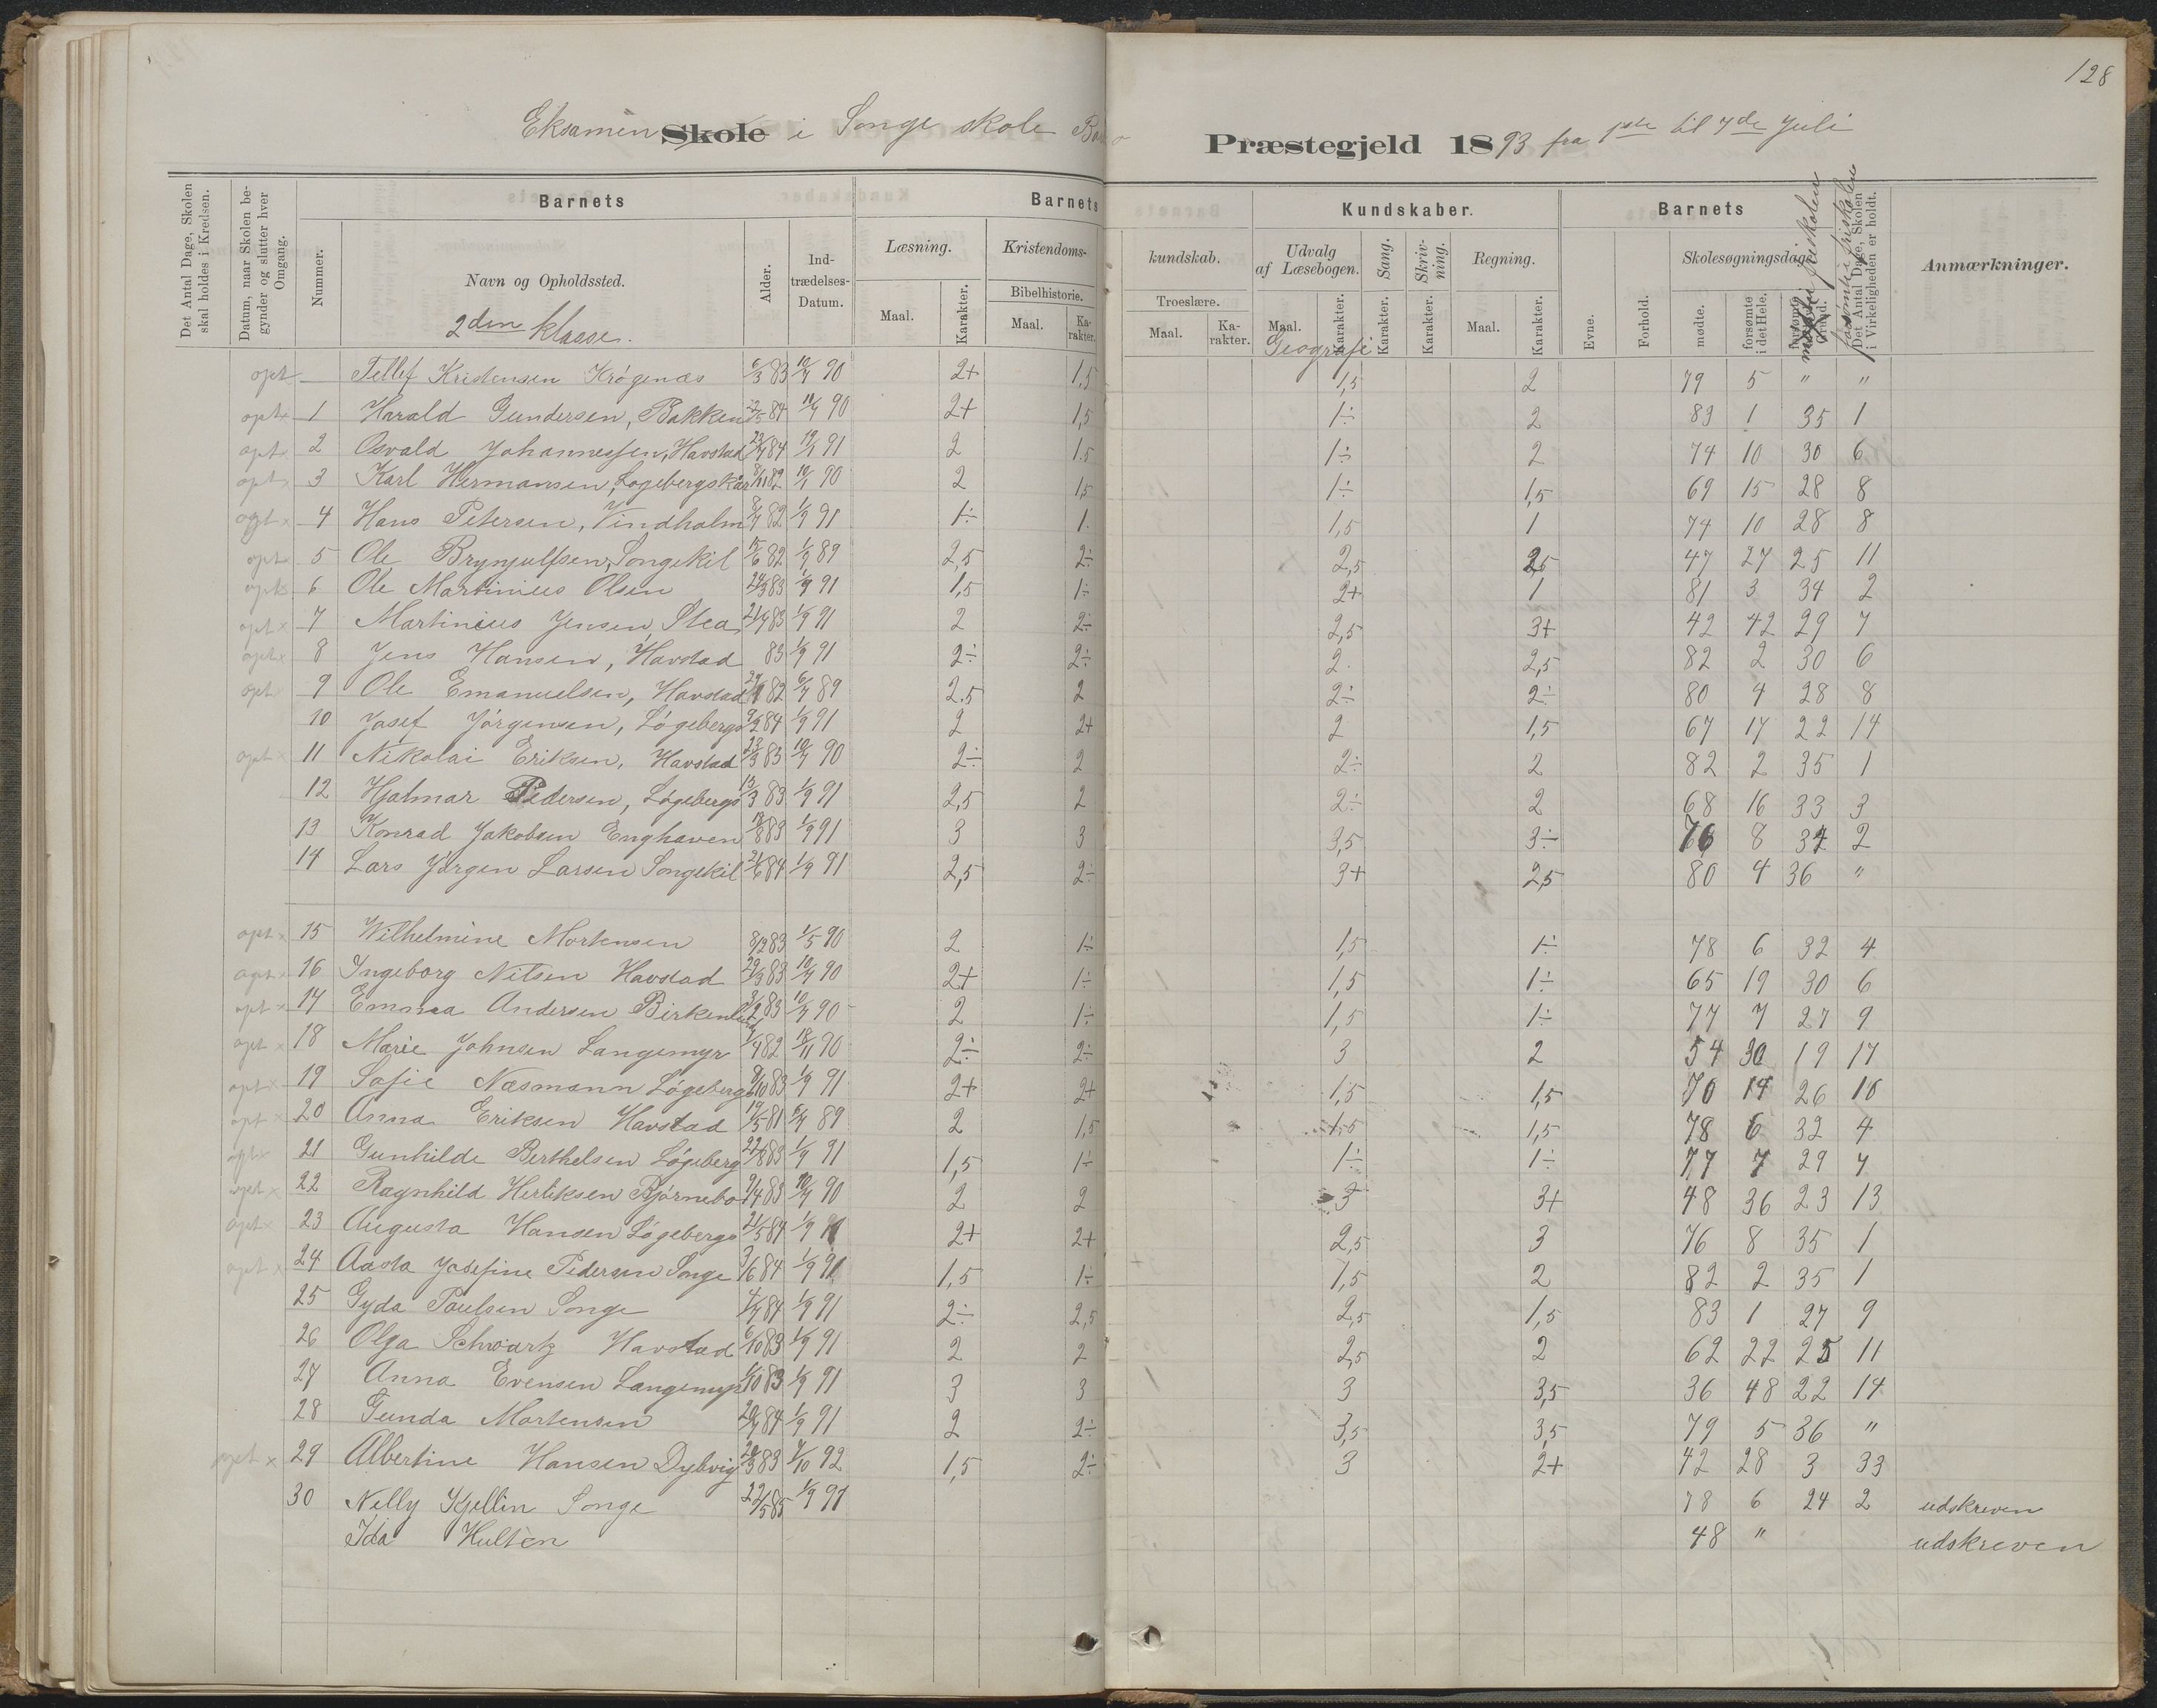 128
Eksamen Skole i Songe skole Præstegjeld 1893 fra 1ste til 7de Juli
Det Antal Dage, Skolen skal holdes i Kredsen.
Datum, naar Skolen begynder og slutter hver Omgang.
Barnets
Nummer.
Navn og Opholdssted.
2den klasse.
Alder.
Indtrædelses-Datum.
Barnets Kundskaber.
Læsning.
Maal. Karakter.
Kristendomskundskab.
Bibelhistorie.
Maal. Karakter.
Troeslære.
Maal. Karakter.
Udvalg af Læsebogen.
Maal. Karakter.
Geografi
Sang.
Karakter.
Skrivning.
Karakter.
Regning.
Maal. Karakter.
Barnets
Evne.
Forhold.
Skolesøgningsdage
mødte.
forsømte i det Hele.
Det Antal Dage, Skolen i Virkeligheden er holdt.
Anmærkninger.
opt — Tellef Kristensen Krógenæs 6/3 83 10/7 90 2+ 1,5 1,5 2 79 5 " "
opt x 1 Harald Gundersen, Bakken 84 11/7 90 2+ 1,5 1÷ 2 83 1 35 1
opt x 2 Osvald Johannessen, Havstad 84 91 2 1.5 1÷ 2 74 10 30 6
opt x 3 Karl Hermansen, Logebergskår 82 90 2 1,5 1÷ 1,5 69 15 28 8
opt x 4 Hans Petersen, Vindholm 82 1/9 91 1÷ 1 1,5 1 74 10 28 8
opt x 5 Ole Brynjulfsen, Songekil 15/6 82 1/9 89 2,5 2÷ 2,5 2,5 47 27 25 11
opt x 6 Ole Martinius Olsen 83 1/9 91 1,5 1÷ 2+ 1 81 3 34 2
opt x 7 Martinius Jensen, Stea 83 1/9 91 2 2÷ 2,5 3+ 42 42 29 7
opt x 8 Jens Hansen, Havstad 83 1/9 91 2÷ 2÷ 2. 2,5 82 2 30 6
opt 9 Ole Emanuelsen, Havstad 82 6/7 89 2.5 2 2÷ 2÷ 80 4 28 8
10 Josef Jörgensen, Lógebergs 9/2 84 1/9 91 2 2+ 2 1,5 67 17 22 14
opt x 11 Nikolai Eriksen, Havstad 23/3 83 10/7 90 2÷ 2 2÷ 2 82 2 35 1
12 Hjalmar Pedersen, Lógebergs 13/3 83 1/9 91 2,5 2 2÷ 2 68 16 33 3
13 Konrad Jakobsen Enghaven 83 1/9 91 3 3 3,5 3÷ 76 8 34 2
14 Lars Jörgen Larsen Songekil 21/6 84 1/9 91 2,5 2÷ 3+ 2,5 80 4 36 "
opt x 15 Wilhelmine Mortensen 8/12 83 1/5 90 2 1÷ 1,5 1÷ 78 6 32 4
opt x 16 Ingeborg Nilsen Havstad 29/3 83 10/7 90 2+ 1÷ 1,5 1÷ 65 19 30 6
opt x 17 Emma Andersen Birkenlund 83 10/7 90 2 1÷ 1,5 1÷ 77 7 27 9
opt x 18 Marie Johnsen Langemyr 82 18/11 90 2÷ 2÷ 3 2 54 30 19 17
opt x 19 Sofie Næsmann Lógebergs 9/10 83 1/9 91 2+ 2+ 1,5 1,5 70 14 26 10
opt x 20 Anna Eriksen Havstad 19/5 81 6/7 89 2 1,5 1,5 1,5 78 6 32 4
opt x 21 Gunhilde Berthelsen Lógeberg 22/8 83 1/9 91 1,5 1÷ 1÷ 1÷ 77 7 29 7
opt x 22 Ragnhild Herliksen Bjórnebo 9/4 83 10/7 90 2 2 3 3+ 48 36 23 13
opt x 23 Augusta Hansen Lógebergs 21/5 84 1/9 91 2+ 2+ 2,5 3 76 8 35 1
opt x 24 Aasta Josefine Pedersen Songe 3/6 84 1/9 91 1,5 1÷ 1,5 2 82 2 35 1
25 Gyda Paulsen Songe 84 1/9 91 2÷ 2,5 2,5 1,5 83 1 27 9
26 Olga Schwartz Havstad 6/10 83 1/9 91 2 2 2,5 2 62 22 25 11
27 Anna Evensen Langemyr 83 1/9 91 3 3 3 3,5 36 48 22 14
28 Gunda Mortensen 84 1/9 91 2 2÷ 3,5 3,5 79 5 36 "
opt x 29 Albertine Hansen Dybvig 83 92 1,5 2÷ 3 2+ 42 28 3 33
30 Nelly Kjellin Songe 22/5 85 1/9 91 78 6 24 2 udskreven
Ida Hultén 48 " udskreven